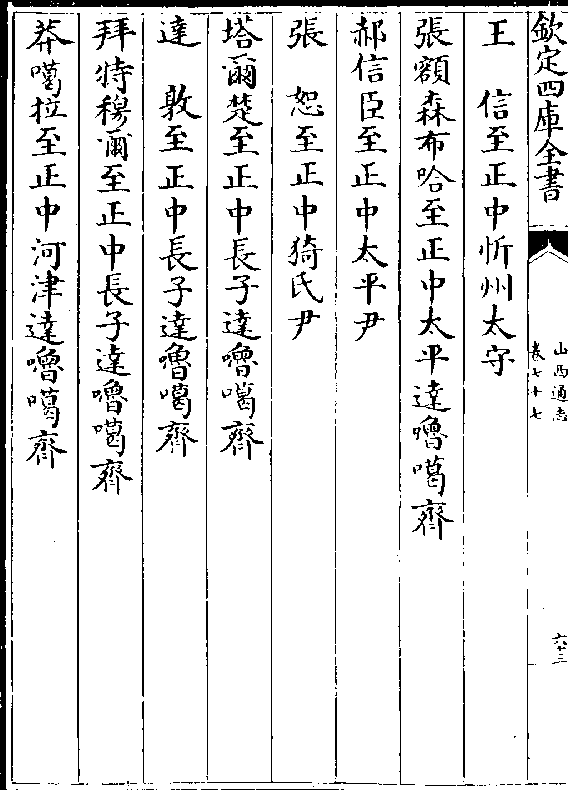 欽定四庫全書
山西通志
卷七十七
六十三
王　信至正中忻州太守
張額森布哈至正中太平達嚕噶齊
郝信臣至正中太平尹
張　恕至正中猗氏尹
塔爾楚至正中長子達嚕噶齊
達　敦至正中長子達嚕噶齊
拜特穆爾至正中長子達嚕噶齊
莽噶拉至正中河津達嚕噶齊